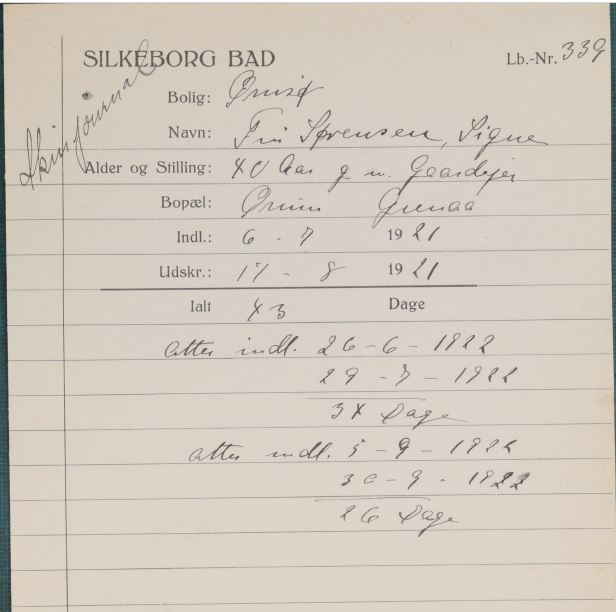 SILKEBORG BAD
Lb.-Nr. 339
Skinjournal
Bolig: Ørnsø
Navn: Fru Sørensen, Signe
Alder og Stilling: 40 Aar g. m. Gaardejer
Bopæl: Ørum Grenaa
Indl.: 6 - 7 1921
Udskr.: 17 - 8 1921
Ialt 43 Dage
atter indl. 26 - 6 - 1922
29 - 7 - 1922
34 Dage
atter indl. 5 - 9 - 1922
30 - 9 - 1922
26 Dage